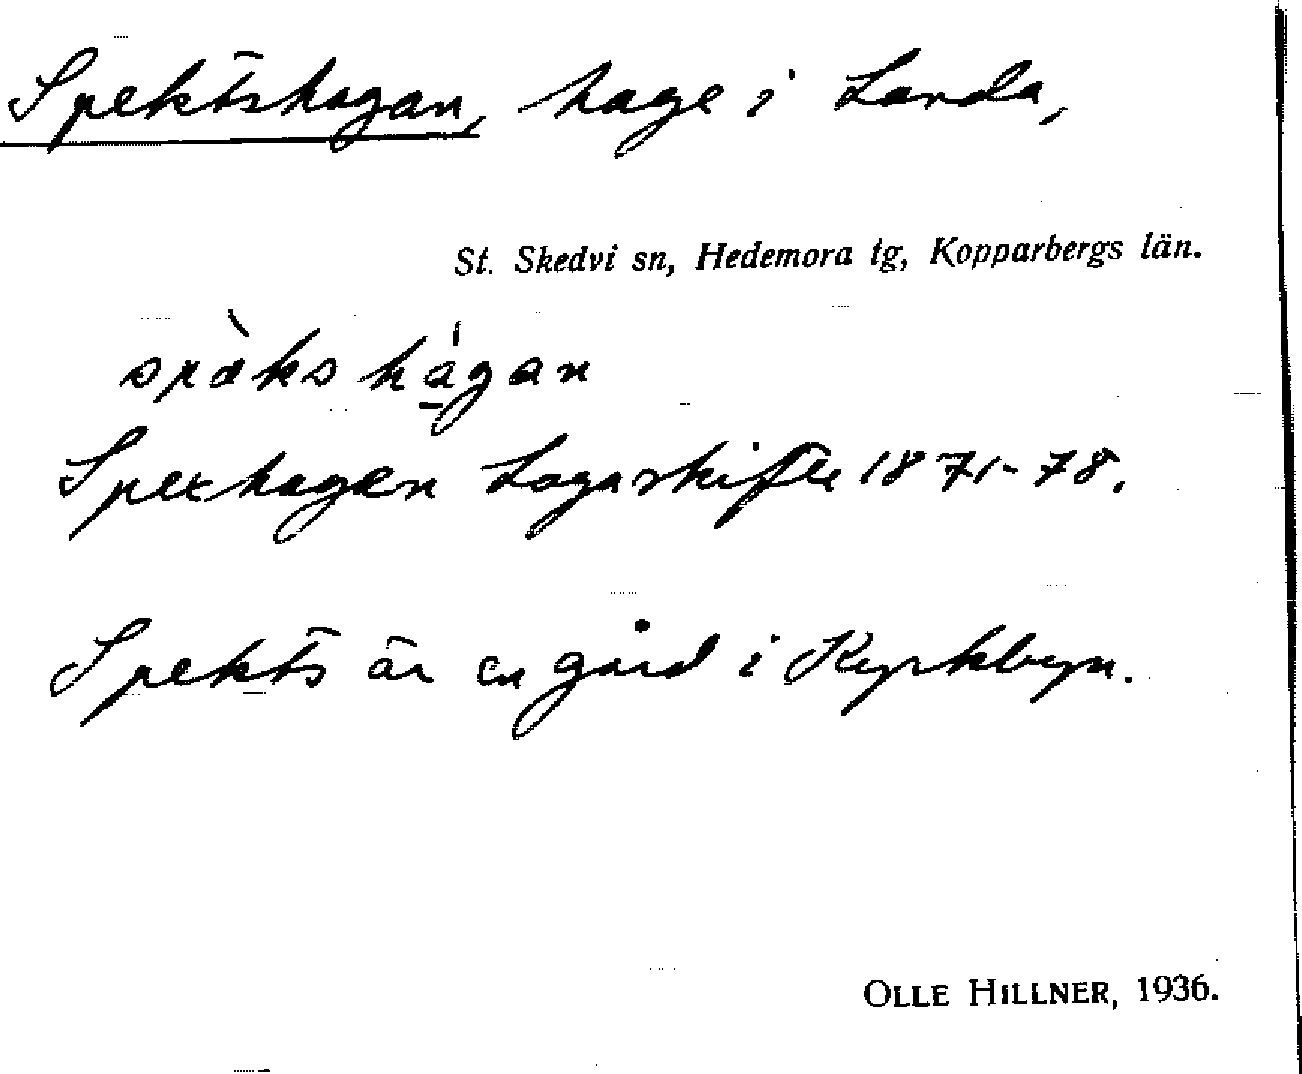 Spektshagan, hage i Landa,
St. Skedvi sn, Hedemora tg, Kopparbergs län.
spὰkshágan
Spexhagen Lagaskifte 1871-78.
Spekts är en gård i Kyrkbyn.
OLLE HILLNER, 1936.